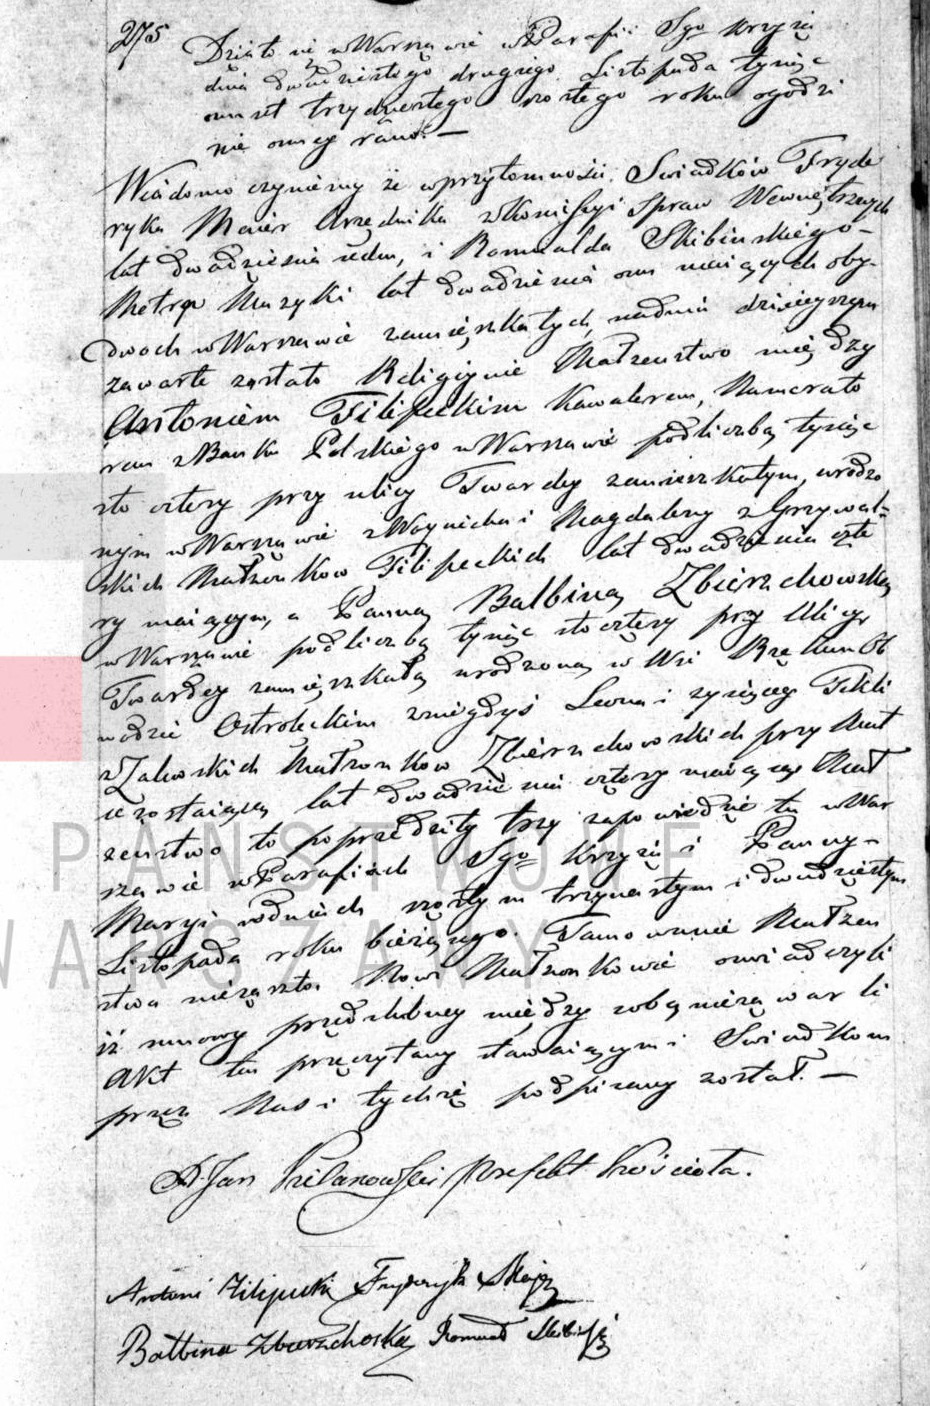 275
Działo się w Warszawie w Parafii Sgo Krzyża
dnia dwudziestego drugiego Listopada tysiąc
osmset trzydziestego szostego roku ogodzi
nie osmey rano. —
Wiadomo czyniemy że wprzytomności Swiadków Fryde
ryka Maier Urzędnika z Komissyi Spraw Wewnętrznych
lat dwadzieścia siedm, i Romualda Skibinskiego –
Metra Muzyki lat dwadzieścia osm maiących oby-
dwoch w Warszawie zamieszkałych, nadniu dzisieyszym
zawarte zostało Religijnie Małżenstwo między
Antonim Filipeckim Kawalerem, Numerato
rem z Banku Polskiego w Warszawie podliczbą tysiąc
sto cztery przy ulicy Twardey zamieszkałym, urodzo
nym w Warszawie z Woyciecha i Magdaleny z Grzywal-
skich Małżonków Filipeckich lat dwadzieścia czte
ry maiącym, a Panną Balbiną Zbierzchowską
w Warszawie podliczbą tysiąc sto cztery przy Ulicy
Twardey zamieszkałą urodzoną w Wsi Ob
wodzie Ostrołęckim zniegdyś Leona i żyiącey Tekli
z Zalewskich Małżonków Zbierzchowskich przy Mat
ce zostaiącą lat dwadzieścia cztery maiącą Mał
żenstwo to poprzedziły trzy zapowiedzie tu w War
szawie w Parafiach Sgo Krzyża i Panny –
Maryi wdniach szostym trzynastym i dwudziestym
Listopada roku bieżącego. Tamowanie Małżen
stwa niezaszło. Nowi Małżonkowie oswiadczyli
iż umowy przedslubney między sobą niezawarli
Akt ten przeczytany stawaiącym i Swiadkom
przez Nas i tychże podpisany został. —
X. Jan Prefekt Kościoła.
Antoni Filipecki Fryderyk Majer
Balbina Zbierzchoska Romuald Skibiński
PAŃSTWOWE
WARSZAWY